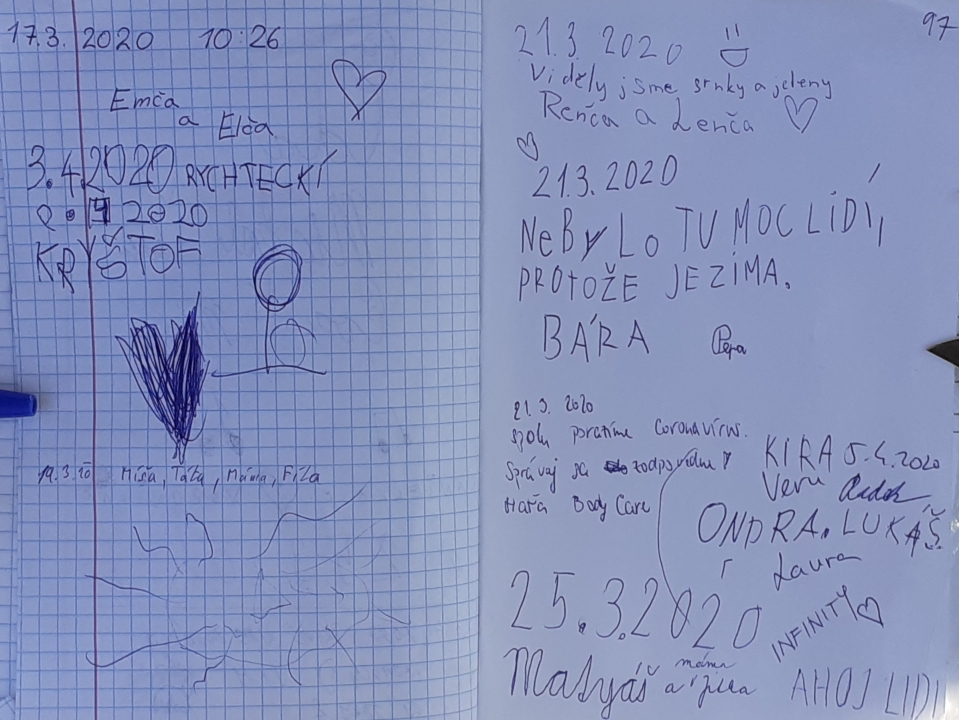 17.3. 2020 10:26
Emča
a Elča
3.4.2020 RYCHTECKÍ
2020
KRYŠTOF
19.3.20 Míša, Táta, Máma, Fíla
97
21.3.2020
Viděly jsme srnky a jeleny
Renča a Lenča
21.3.2020
NeByLo TU MOC LIDÍ,
PROTOŽE JE ZIMA.
BÁRA Pepa
21.3. 2020
spolu porazíme Coronavírus.
Správaj sa zodpovědne
Haťa Body Care
KIRA 5.4.2020
Veru Radek
ONDRA. LUKÁŠ
Laura
25.3.2020
INFINITY
Matyáš a máma
AHOJ LIDI